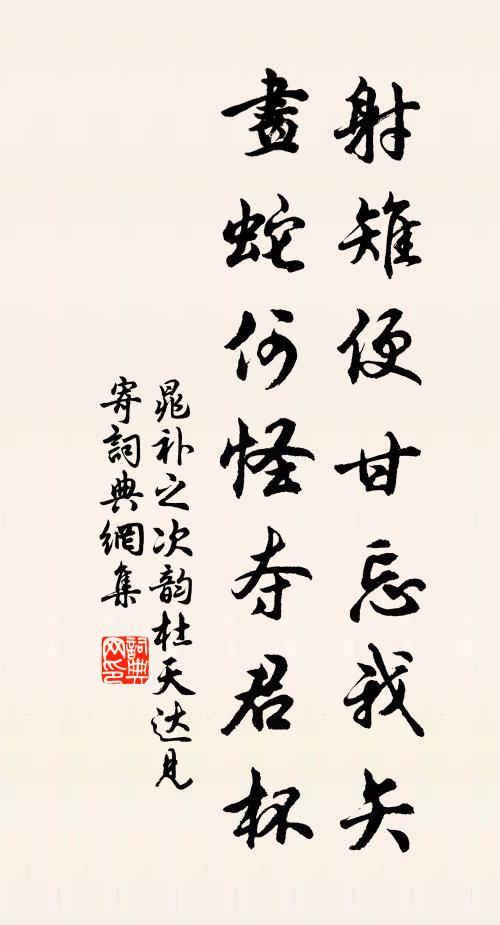 射雉便甘忘我矢
畫蛇何怪夺君杯
晁补之次韵杜天达见
寄詞典網集
詞典
网印